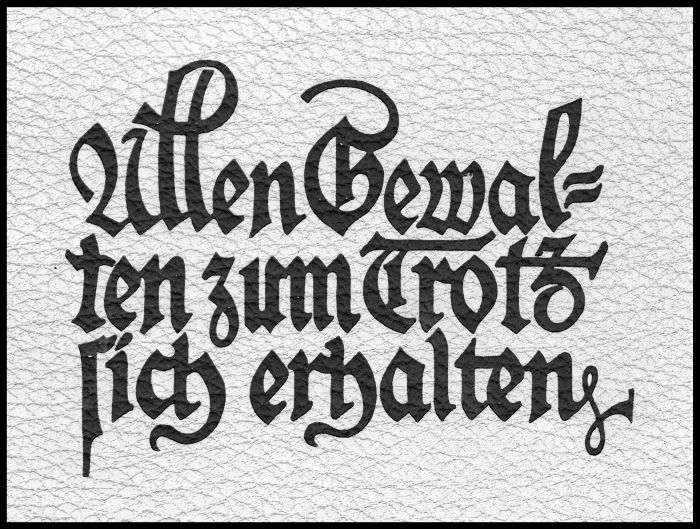 Allen Gewal-
ten zum Trotz
sich erhalten